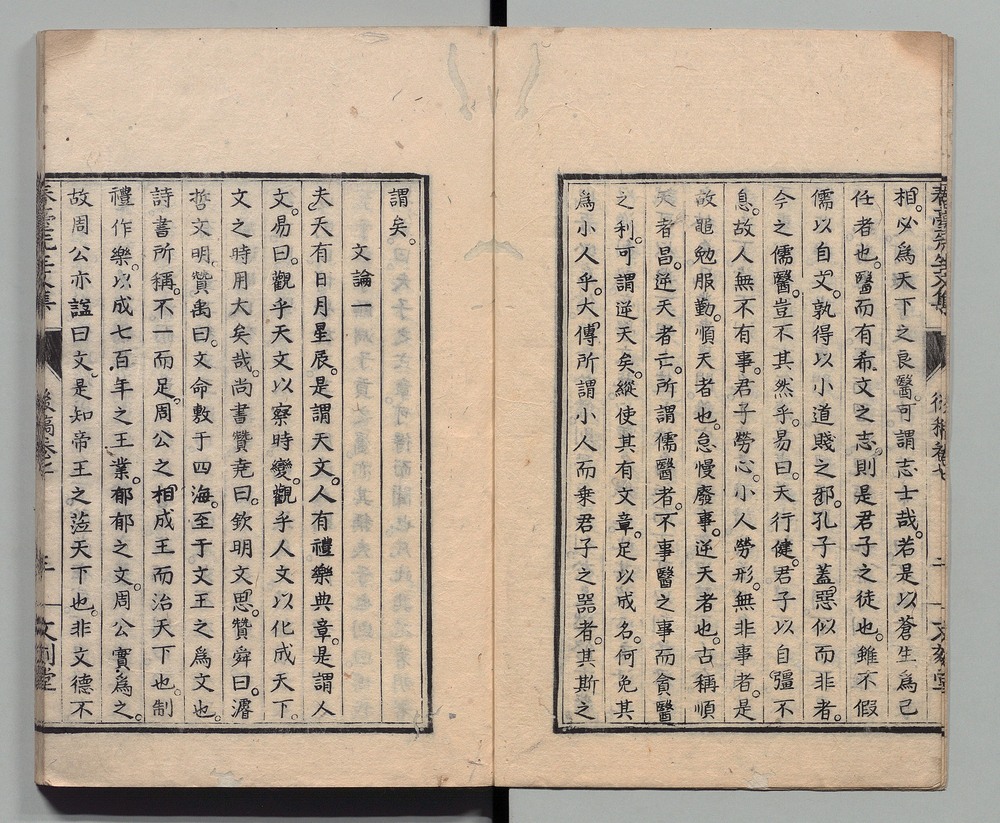 相。必為天下之良醫。可謂志士哉。若是以蒼生為己
任者也。醫而有希文之志。則是君子之徒也。雖不假
儒以自文。孰得以小道賤之邪。孔子蓋惡似而非者。
今之儒醫。豈不其然乎。易曰。天行健。君子以自彊不
息。故人無不有事。君子勞心。小人勞形。無非事者。是
故黽勉服勤。順天者也。怠慢廢事。逆天者也。古稱順
天者昌。逆天者亡。所謂儒醫者。不事醫之事而貪醫
之利。可謂逆天矣。縱使其有文章。足以成名。何免其
為小人乎。大傳所謂小人而乗君子之器者。其斯之
謂矣。
文論一
夫天有日月星辰。是謂天文。人有禮樂典章。是謂人
文。易曰。觀乎天文以察時變。觀乎人文以化成天下。
文之時用大矣哉。尚書贊堯曰。欽明文思。贊舜曰。濬
哲文明。贊禹曰。文命敷于四海。至于文王之為文也。
詩書所稱。不一而足。周公之相成王而治天下也。制
禮作樂。以成七百年之王業。郁郁之文。周公實為之。
故周公亦諡曰文。是知帝王之蒞天下也。非文德不
後稿卷七
二
文刻堂
三